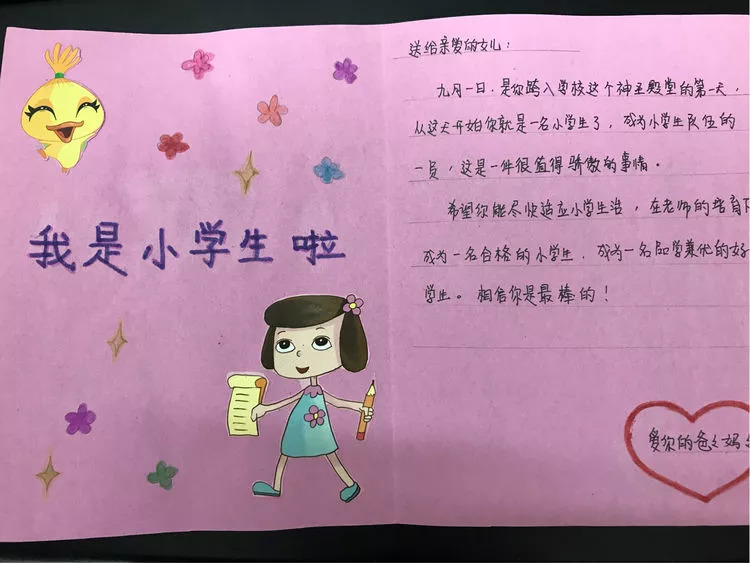 我是小学生啦
送给亲爱的女儿：
九月一日，是你跨入学校这个神圣殿堂的第一天，
从这天开始你就是一名小学生了，成为小学生队伍的
一员，这是一件很值得骄傲的事情。
希望你能尽快适应小学生活，在老师的培育下
成为一名合格的小学生，成为一名品学兼优的好
学生。相信你是最棒的！
爱你的爸爸妈